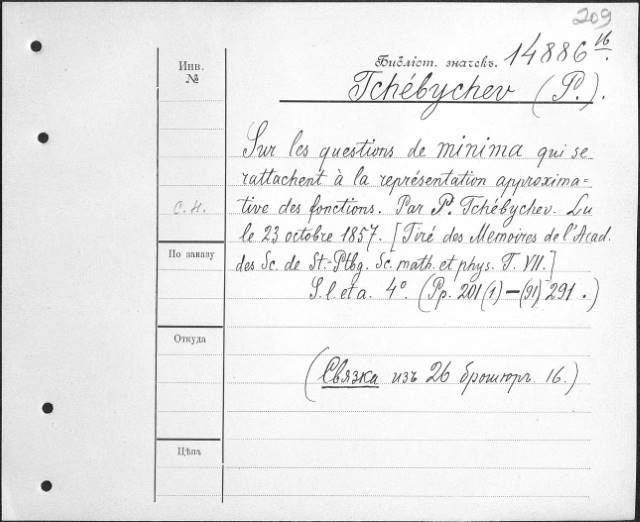 209
Инв.
№
Библіот. значекъ. 14886 16.
Tchébychev (P.).
Sur les questions de minima qui se
rattachent à la représentation approxima=
tive des fonctions. Par P. Tchébychev. Lu
С.Н.
le 23 octobre 1857. [Tiré des Memoires de l'Acad.
По заказу
des Sc. de St.-Ptbg. Sc. math. et phys. T. VII.]
S. l. et a. 4º. (Pp. 201(1)—(91)291.)
Откуда
(Связка изъ 26 брошюръ. 16.)
Цѣна